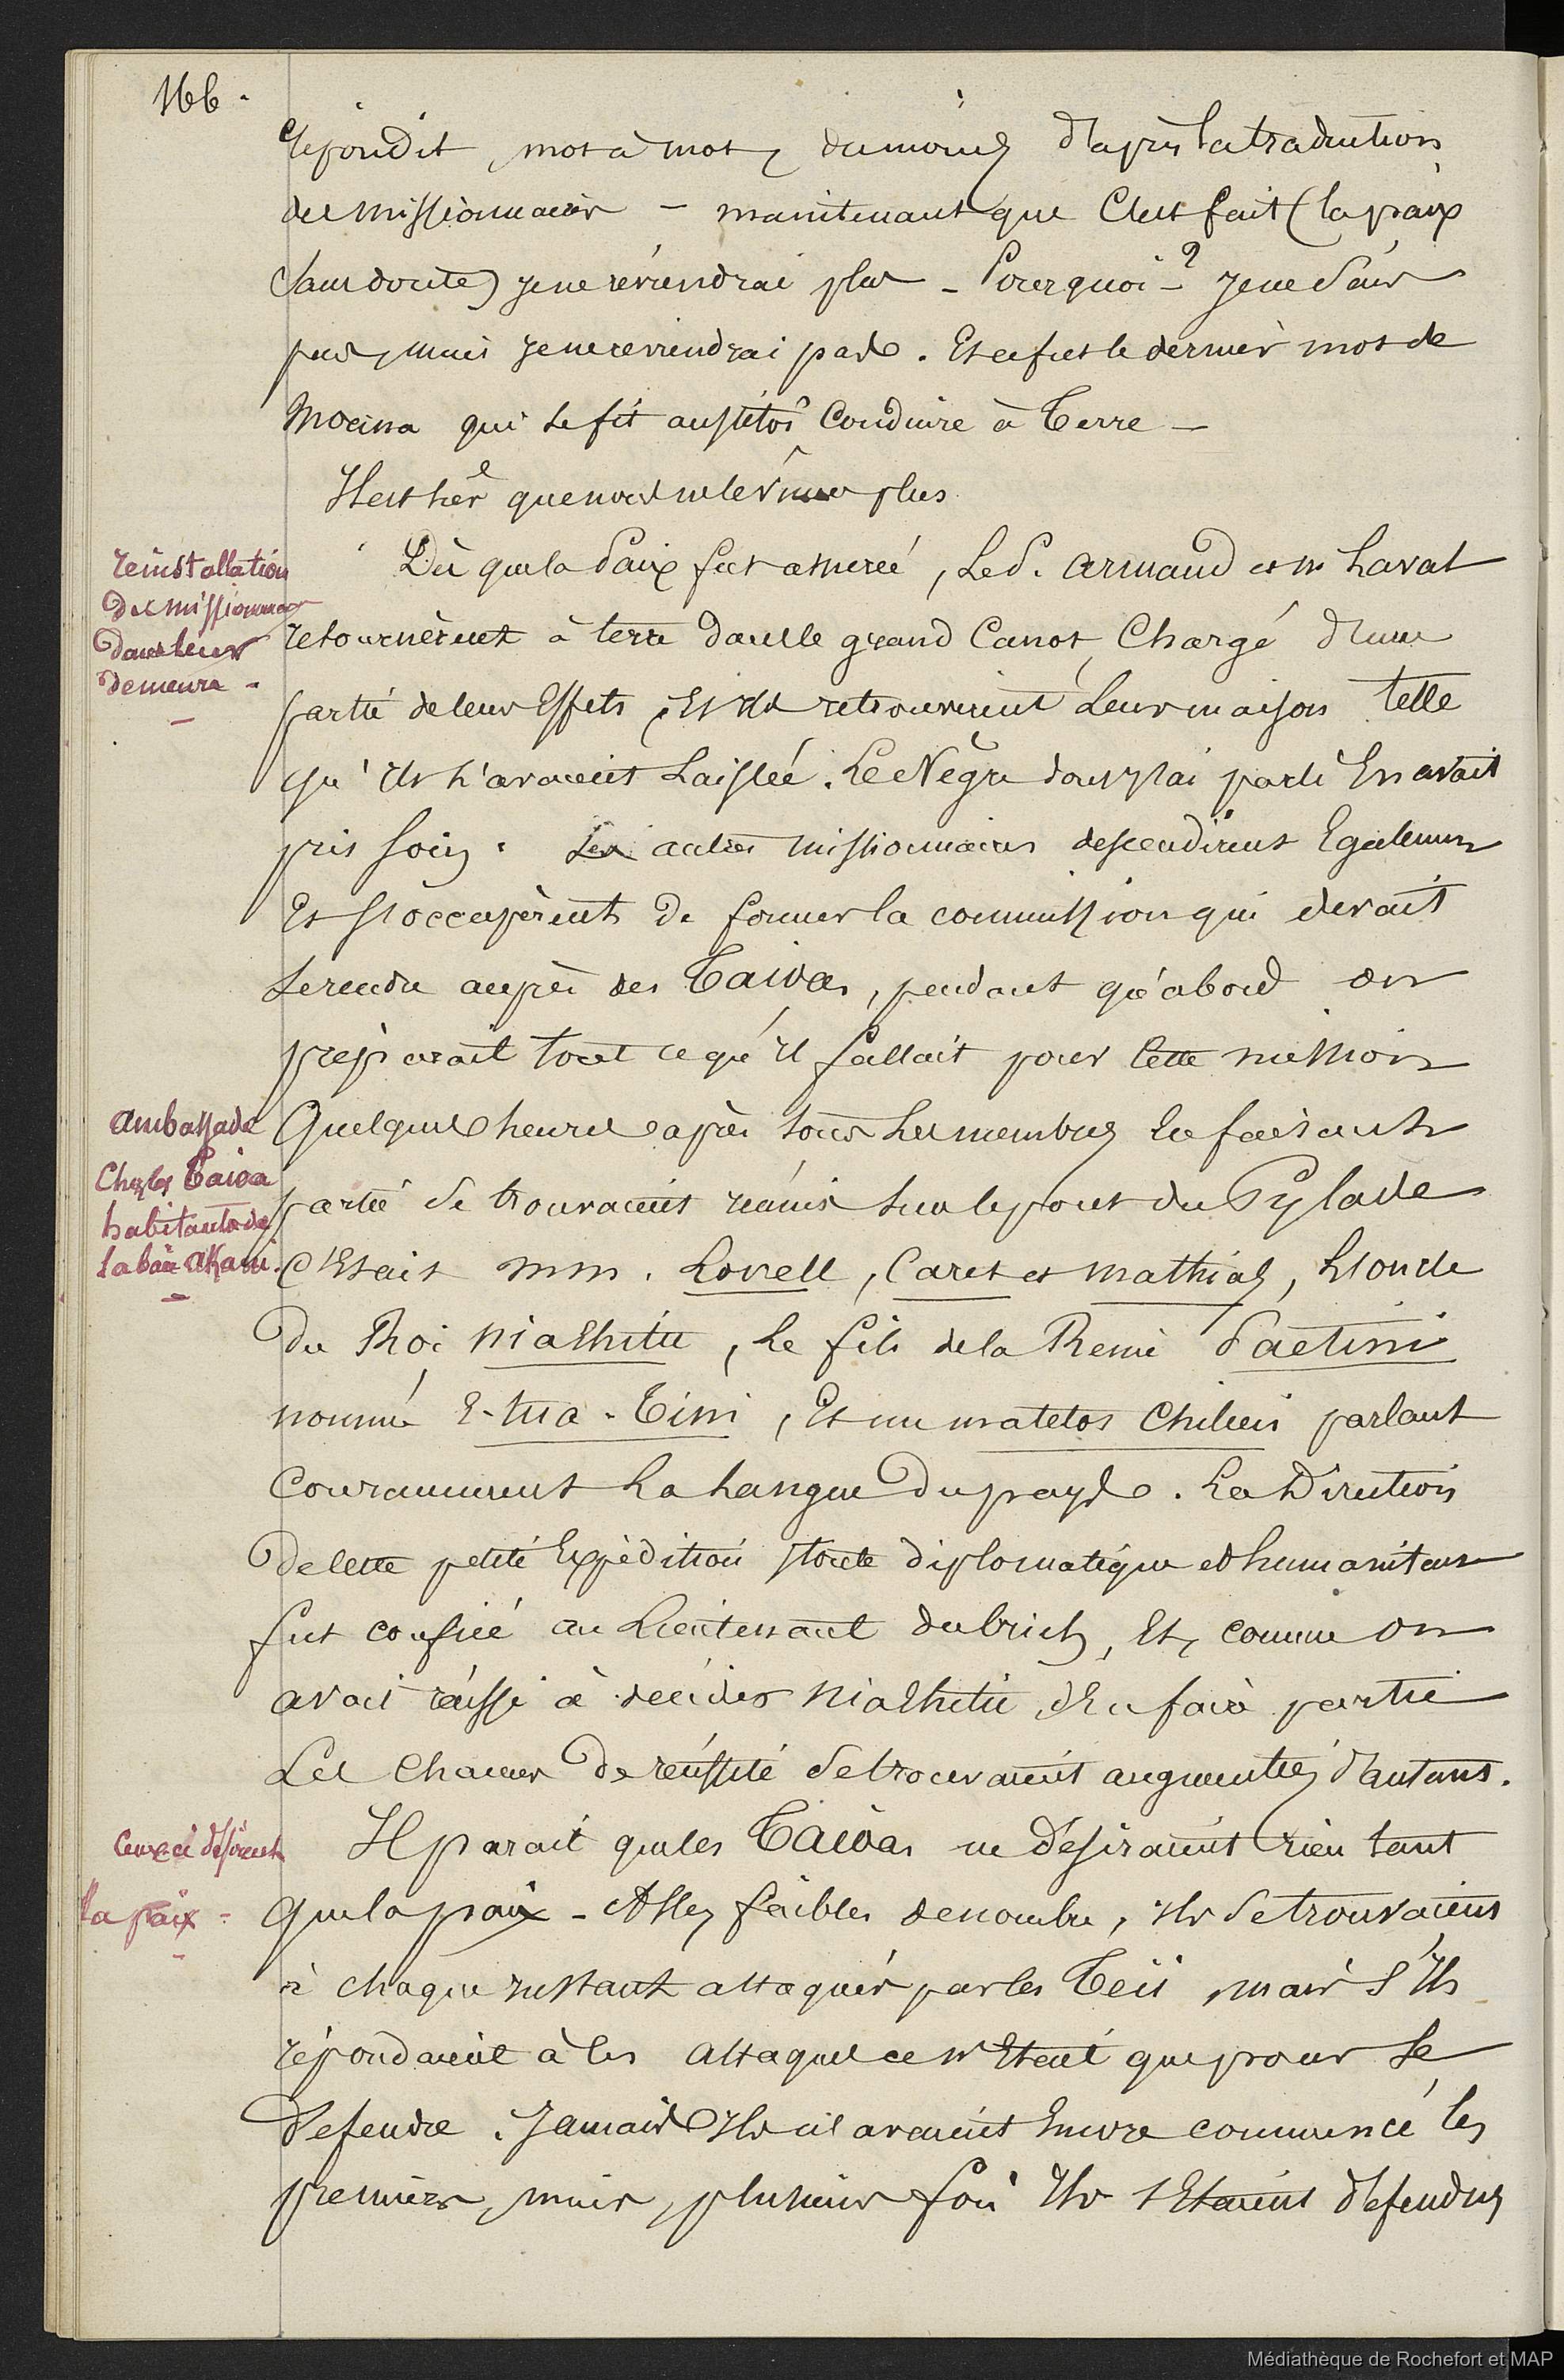 166.
répondit, mot à mot, du moins d'après la traduction
des missionnaires - maintenant que c'est fait (la paix
sans doute) je ne reviendrai plus - Pourquoi - ? je ne sais
pas, mais je ne reviendrai pas. Et ce fut le dernier mot de
Moana qui se fit aussitôt conduire à terre -
que nous ne le vîmes plus
réinstallation
des missionnaires
dans leur
demeure -
Dès que la Paix fut assurée, le P. Armand et M Laval
retournèrent à terre dans le grand canot, chargé d'une
partie de leurs Effets, Et ils retrouvèrent leur maison telle
qu'ils l'avaient laissée. Le Nègre dont j'ai parlé En avait
pris soin. Les autres missionnaires descendirent Egalement
Et s'occupèrent de former la commission qui devait
se rendre auprès des Taïoas, pendant qu'à bord on
préparait tout ce qu'il fallait pour cette mission
ambassade
chez les Taioa
habitants de
la baie akani.
Quelques heures après tous les membres En faisant
partie se trouvaient réunis sur le pont du Pylade
C'Etait MM. Lovell, Caret et Mathias, l'oncle
du Roi Niahitu, le fils de la Reine Paetini
nommé E-tua-Tini, Et un matelot Chilien parlant
couramment la langue du pays. La Direction
de cette petite Expédition toute diplomatique et humanitaire
fut confiée au Lieutenant du brick, Et, comme on
avait réussi à décider Niahitu, d'En faire partie
Les chances de réussite se trouvaient augmentées d'autant.
Ceux-ci désirent
la paix -
Il parait que les Taïoas ne désiraient rien tant
que la paix - Assez faibles de nombre, ils se trouvaient
à chaque instant attaqués par les Teii, mais s'ils
répondaient à les attaques ce n'Etait que pour se
défendre. Jamais ils n'avaient Encore commencé les
premiers, mais, plusieurs fois ils s'Etaient défendus
Médiathèque de Rochefort et MAP